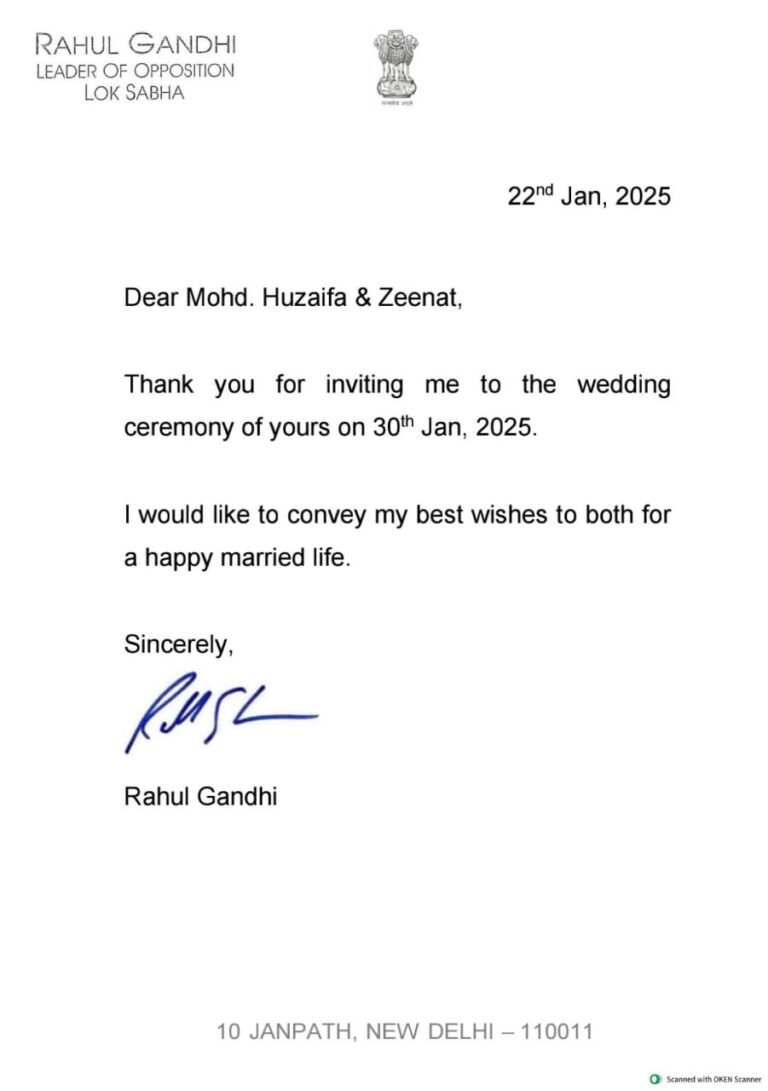 RAHUL GANDHI
LEADER OF OPPOSITION
LOK SABHA
सत्यमेव जयते
22nd Jan, 2025
Dear Mohd. Huzaifa & Zeenat,
Thank you for inviting me to the wedding
ceremony of yours on 30th Jan, 2025.
I would like to convey my best wishes to both for
a happy married life.
Sincerely,
Rahul Gandhi
10 JANPATH, NEW DELHI – 110011
Scanned with OKEN Scanner